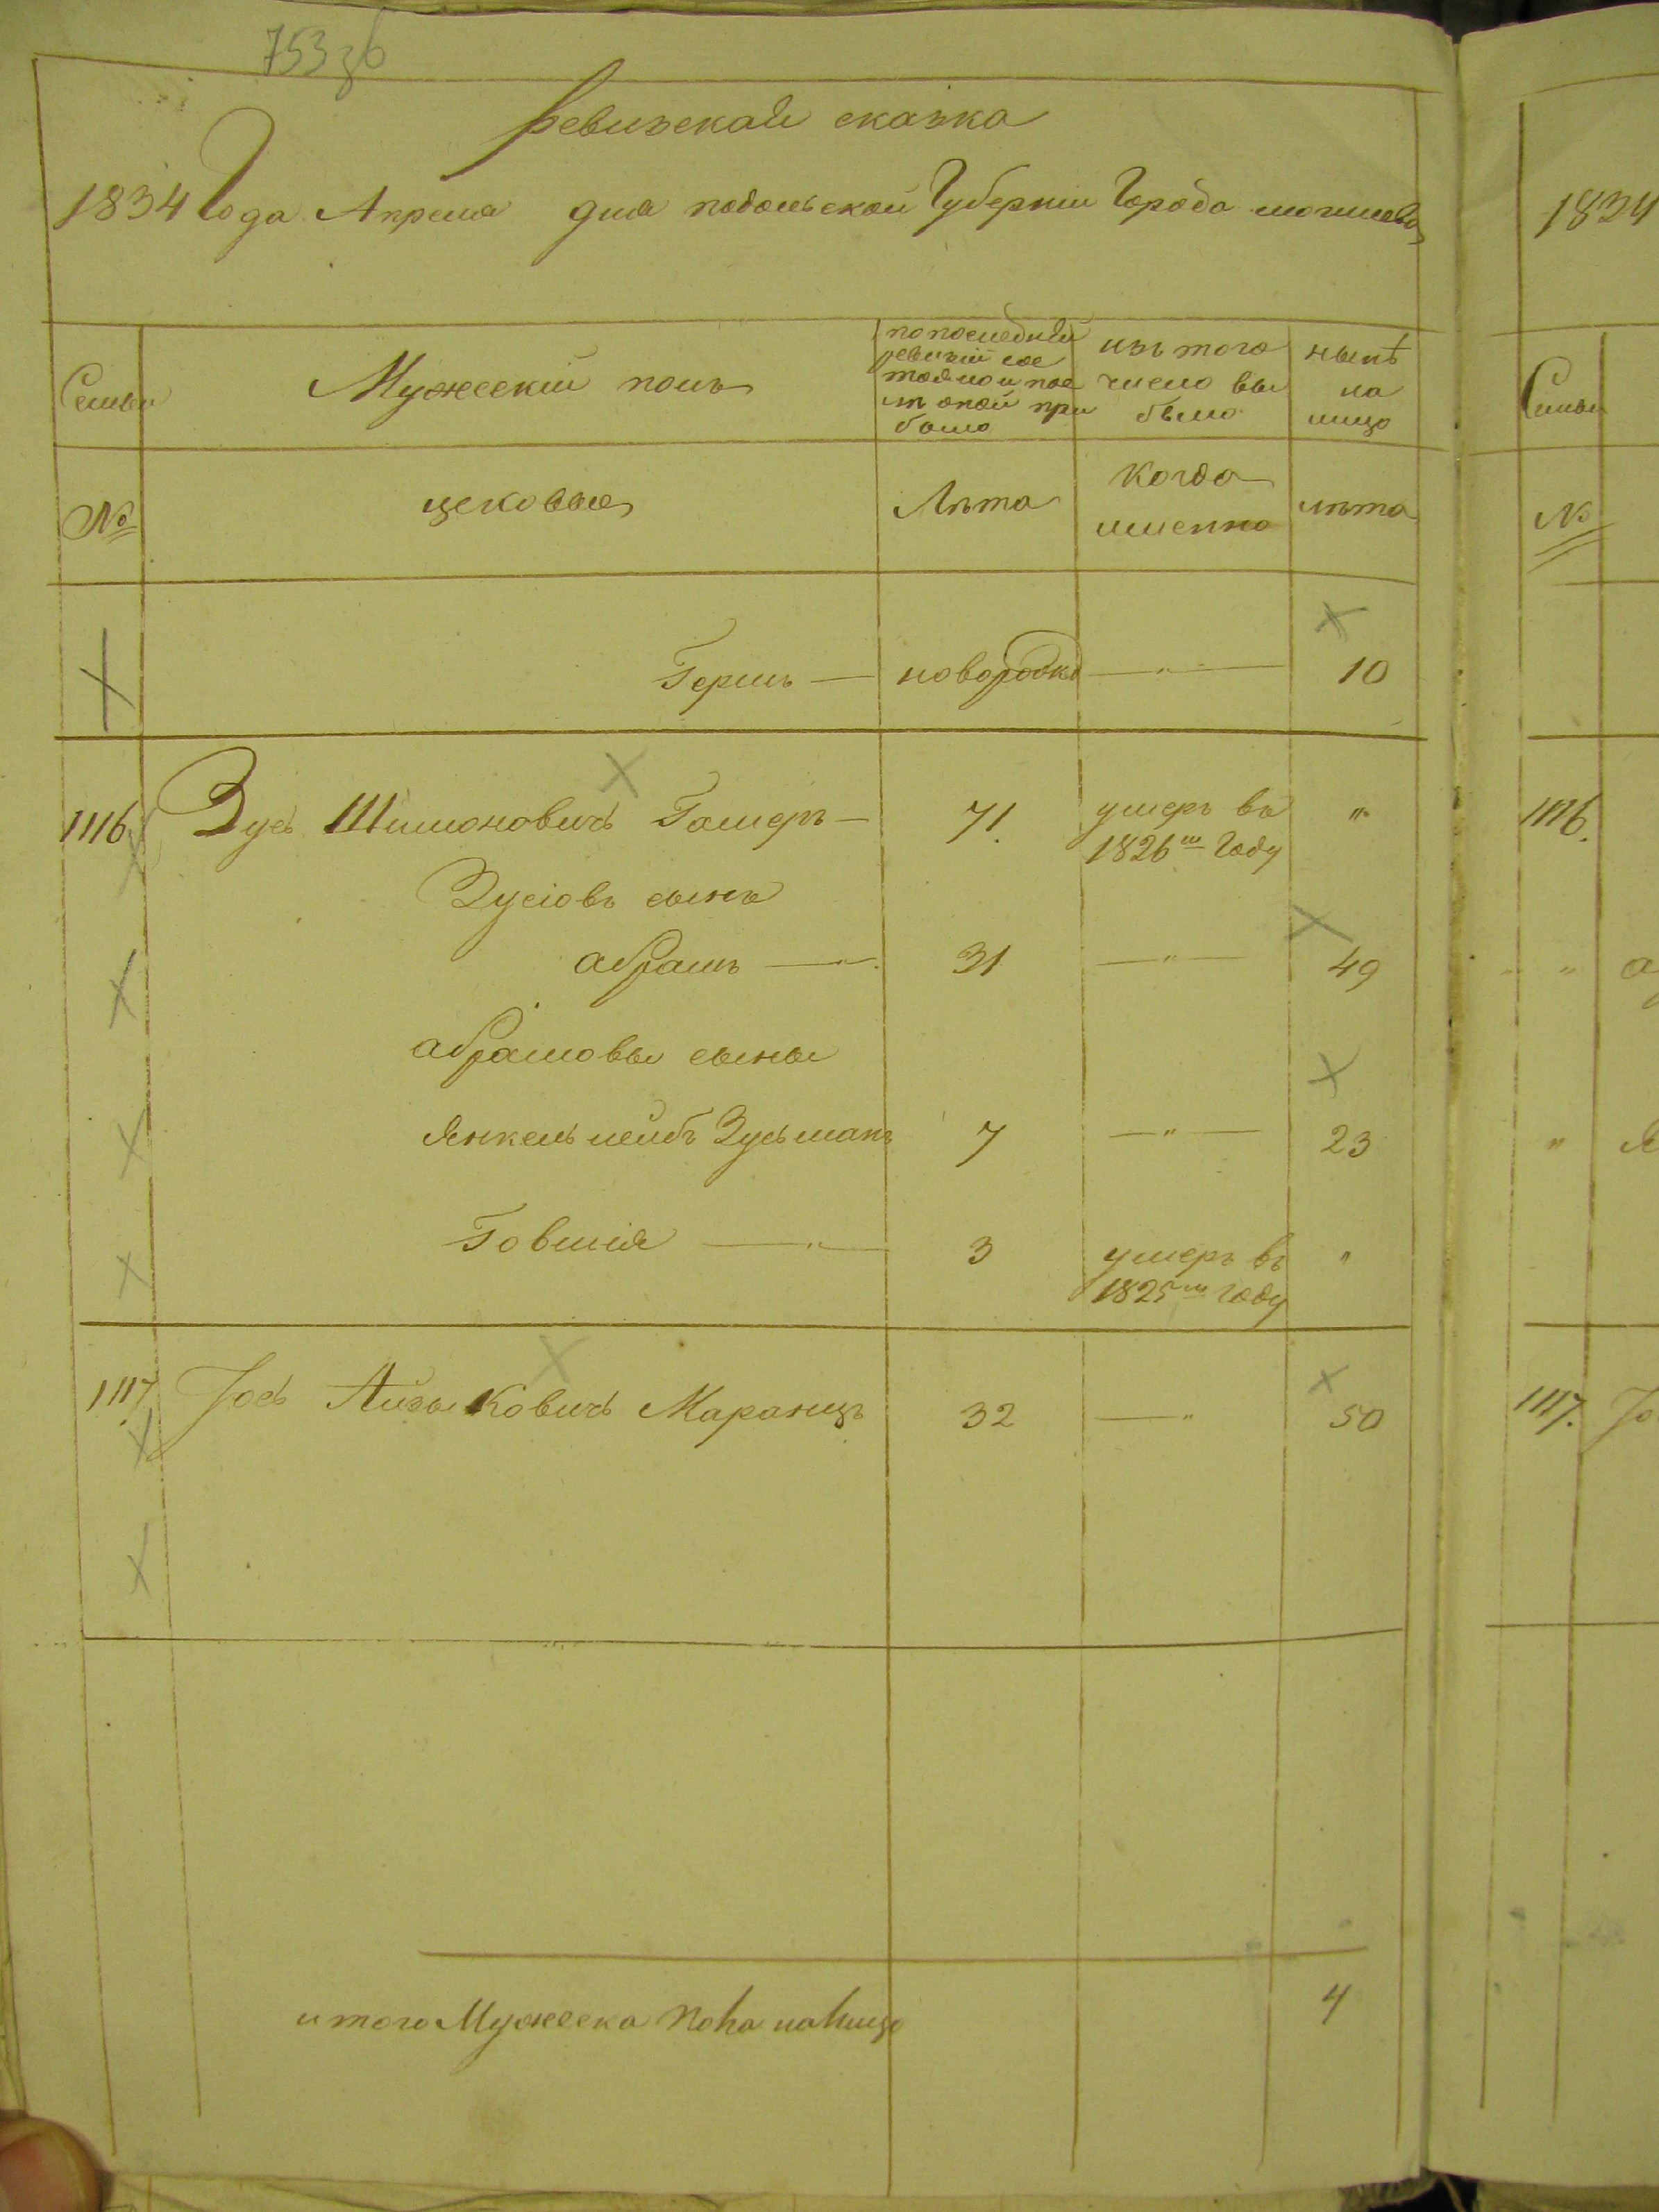 753зв
Ревизская сказка
1834 Года Апреля дня подольской Губернии Города могилева
Семьи
Мужеский полъ
по последней
ревизии сос
тояло и пос
ле оной при
было
изъ того
число вы
было
нынѣ
на
лицо
№
цеховые
Лѣта
Когда
именно
лѣта
Гершъ — новорожд — " — 10
1116. Зусь Шимоновичъ Гомеръ — 71. умеръ въ "
1826 м Году
Зусіовъ сынъ
абрамъ — " — 31 — " — 49
абрамовы сыны
Янкель лейбъ Зусьманъ 7 — " — 23
Говшія — " — 3 умеръ въ "
1825 м году
1117. Іось Айзыковичъ Маранцъ 32 — " 50
итого Мужеска пола налицо 4
1834
Семьи
№
1116.
" а
" Я
1117. Іо